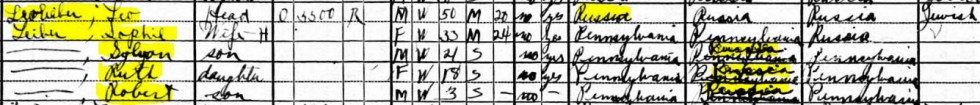 Leo Head O 3500 R M W 50 M 20 no yes Russia Russia Russia Jewish
Leiber, Sophie Wife-H F W 33 M 24 no yes Pennsylvania Pennsylvania Russia
son M W 21 S no yes Pennsylvania Russia Pennsylvania
Ruth daughter F W 18 S no yes Pennsylvania Russia Pennsylvania
Robert son M W 3 S - no Pennsylvania Russia Pennsylvania